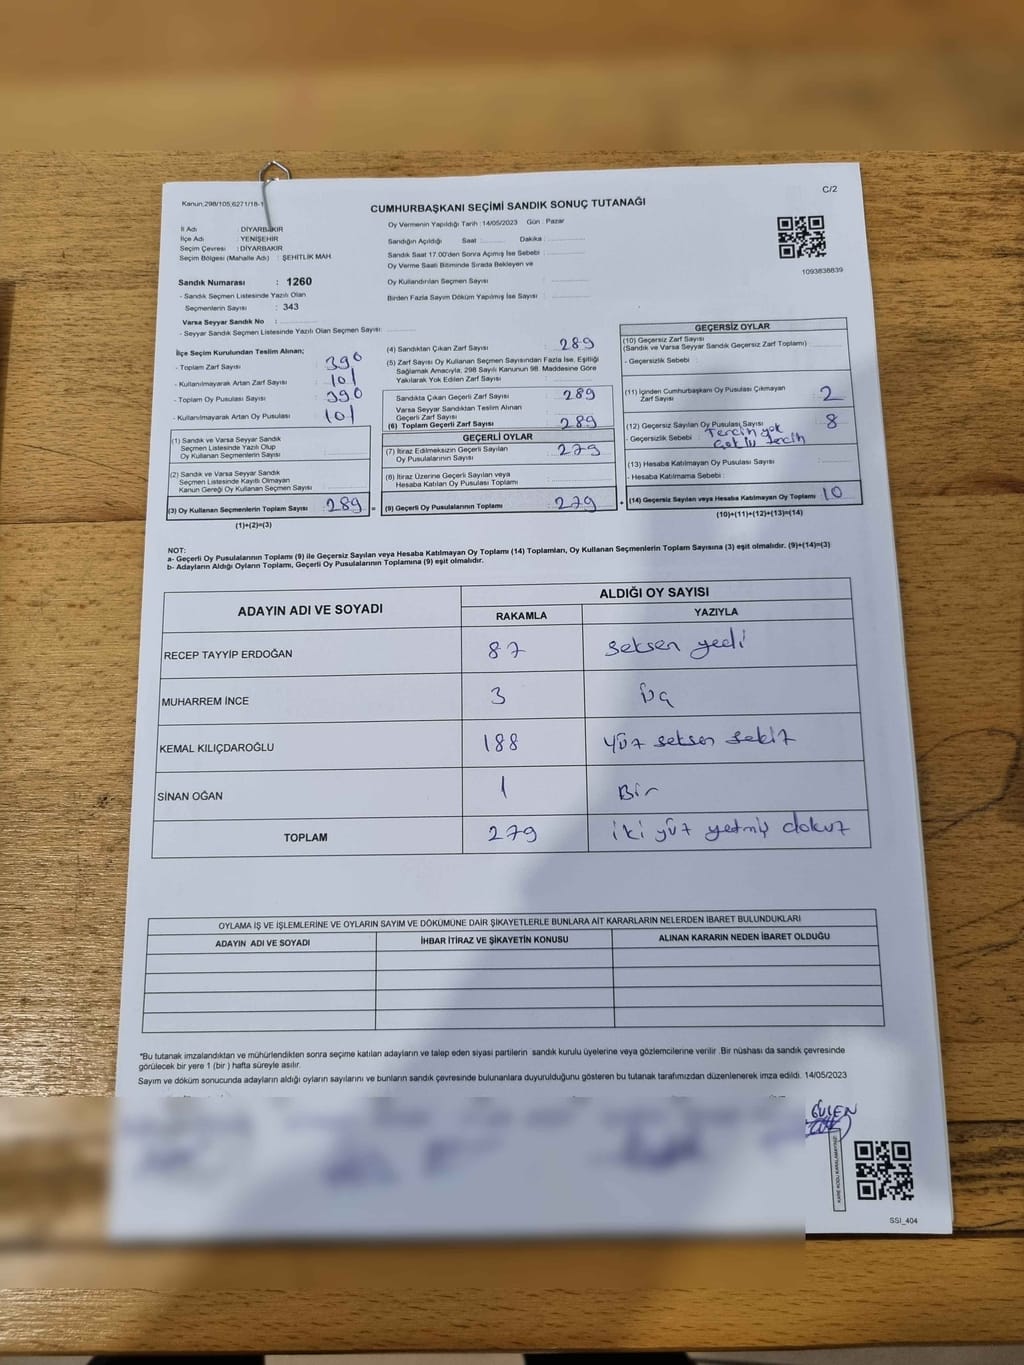 Kanun,298/105,6271/18-1
C/2
CUMHURBAŞKANI SEÇİMİ SANDIK SONUÇ TUTANAĞI
İl Adı : DİYARBAKIR
İlçe Adı : YENİŞEHİR
Seçim Çevresi : DİYARBAKIR
Seçim Bölgesi (Mahalle Adı) : ŞEHİTLİK MAH.
Oy Vermenin Yapıldığı Tarih : 14/05/2023 Gün : Pazar
Sandığın Açıldığı Saat : Dakika :
Sandık Saat 17.00'den Sonra Açımış İse Sebebi :
Oy Verme Saati Bitiminde Sırada Bekleyen ve
Oy Kullandırılan Seçmen Sayısı :
Birden Fazla Sayım Döküm Yapılmış İse Sayısı :
1093838839
Sandık Numarası : 1260
- Sandık Seçmen Listesinde Yazılı Olan
Seçmenlerin Sayısı : 343
Varsa Seyyar Sandık No :
- Seyyar Sandık Seçmen Listesinde Yazılı Olan Seçmen Sayısı:
İlçe Seçim Kurulundan Teslim Alınan;
- Toplam Zarf Sayısı : 390
- Kullanılmayarak Artan Zarf Sayısı : 101
- Toplam Oy Pusulası Sayısı : 390
- Kullanılmayarak Artan Oy Pusulası : 101
(1) Sandık ve Varsa Seyyar Sandık
Seçmen Listesinde Yazılı Olup
Oy Kullanan Seçmenlerin Sayısı :
(2) Sandık ve Varsa Seyyar Sandık
Seçmen Listesinde Kayıtlı Olmayan
Kanun Gereği Oy Kullanan Seçmen Sayısı :
(3) Oy Kullanan Seçmenlerin Toplam Sayısı : 289 =
(1)+(2)=(3)
(4) Sandıktan Çıkan Zarf Sayısı : 289
(5) Zarf Sayısı Oy Kullanan Seçmen Sayısından Fazla İse, Eşitliği
Sağlamak Amacıyla, 298 Sayılı Kanunun 98. Maddesine Göre
Yakılarak Yok Edilen Zarf Sayısı :
Sandıkta Çıkan Geçerli Zarf Sayısı : 289
Varsa Seyyar Sandıktan Teslim Alınan
Geçerli Zarf Sayısı :
(6) Toplam Geçerli Zarf Sayısı : 289
GEÇERLİ OYLAR
(7) İtiraz Edilmeksizin Geçerli Sayılan
Oy Pusulalarının Sayısı : 279
(8) İtiraz Üzerine Geçerli Sayılan veya
Hesaba Katılan Oy Pusulası Toplamı :
(9) Geçerli Oy Pusulalarının Toplamı : 279 +
GEÇERSİZ OYLAR
(10) Geçersiz Zarf Sayısı
(Sandık ve Varsa Seyyar Sandık Geçersiz Zarf Toplamı) :
- Geçersizlik Sebebi :
(11) İçinden Cumhurbaşkanı Oy Pusulası Çıkmayan
Zarf Sayısı : 2
(12) Geçersiz Sayılan Oy Pusulası Sayısı : 8
- Geçersizlik Sebebi : Tercih yok
Çoklu Tercih
(13) Hesaba Katılmayan Oy Pusulası Sayısı :
- Hesaba Katılmama Sebebi :
(14) Geçersiz Sayılan veya Hesaba Katılmayan Oy Toplamı : 10
(10)+(11)+(12)+(13)=(14)
NOT:
a- Geçerli Oy Pusulalarının Toplamı (9) ile Geçersiz Sayılan veya Hesaba Katılmayan Oy Toplamı (14) Toplamları, Oy Kullanan Seçmenlerin Toplam Sayısına (3) eşit olmalıdır. (9)+(14)=(3)
b- Adayların Aldığı Oyların Toplamı, Geçerli Oy Pusulalarının Toplamına (9) eşit olmalıdır.
ADAYIN ADI VE SOYADI
ALDIĞI OY SAYISI
RAKAMLA YAZIYLA
RECEP TAYYİP ERDOĞAN 87 seksen yedi
MUHARREM İNCE 3 üç
KEMAL KILIÇDAROĞLU 188 yüz seksen sekiz
SİNAN OĞAN 1 Bir
TOPLAM 279 iki yüz yetmiş dokuz
OYLAMA İŞ VE İŞLEMLERİNE VE OYLARIN SAYIM VE DÖKÜMÜNE DAİR ŞİKAYETLERLE BUNLARA AİT KARARLARIN NELERDEN İBARET BULUNDUKLARI
ADAYIN ADI VE SOYADI İHBAR İTİRAZ VE ŞİKAYETİN KONUSU ALINAN KARARIN NEDEN İBARET OLDUĞU
*Bu tutanak imzalandıktan ve mühürlendikten sonra seçime katılan adayların ve talep eden siyasi partilerin sandık kurulu üyelerine veya gözlemcilerine verilir .Bir nüshası da sandık çevresinde
görülecek bir yere 1 (bir ) hafta süreyle asılır.
Sayım ve döküm sonucunda adayların aldığı oyların sayılarını ve bunların sandık çevresinde bulunanlara duyurulduğunu gösteren bu tutanak tarafımızdan düzenlenerek imza edildi. 14/05/2023
GÜLEN
KARE KODU KARALAMAYINIZ!
SSI_404